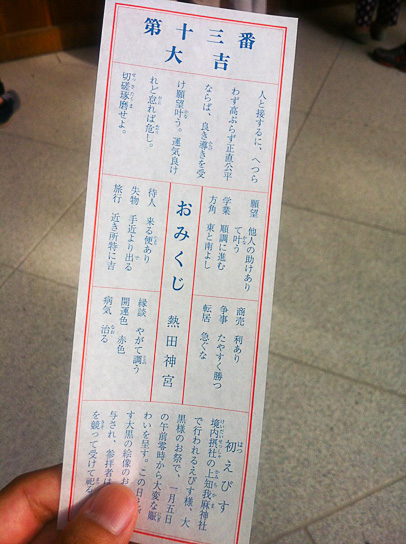 第十三番
大吉
人と接するに、へつら
わず高ぶらず正直公平
ならば、良き導きを受
け願望叶う。運気良け
れど怠れば危し。
切磋琢磨せよ。
願望 他人の助けあり
て叶う
学業 順調に進む
方角 東と南よし
おみくじ 熱田神宮
待人 来る便あり
失物 手近より出る
旅行 近き所特に吉
商売 利あり
争事 たやすく勝つ
転居 急ぐな
縁談 やがて調う
開運色 赤色
病気 治る
初えびす
境内摂社の上知我麻神社
で行われるえびす様、大
黒様のお祭で、一月五日
の午前零時から大変な賑
わいを呈す。この日
す大黒の絵像のお
与され、参拝者は
を競って受けて祀